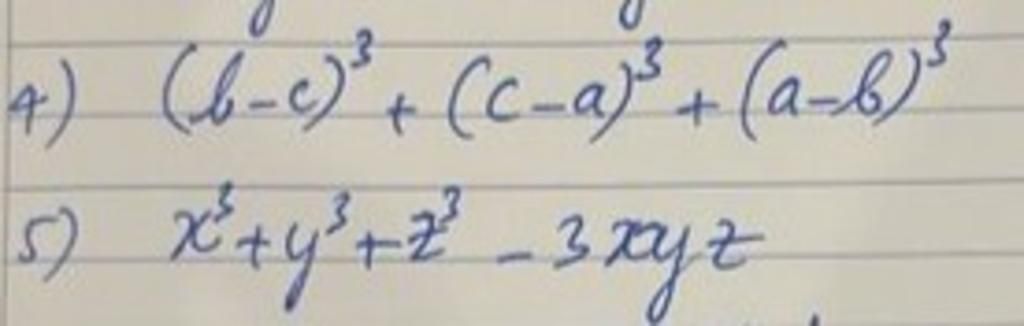 4) (b-c)³ + (c-a)³ + (a-b)³
5) x³+y³+z³ - 3xyz